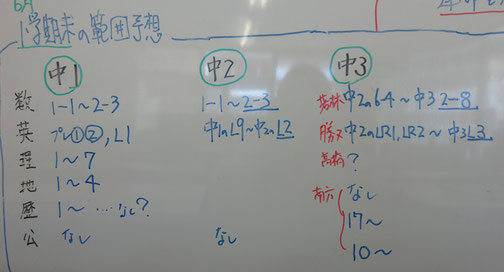 6月
1学期末の範囲予想
中1 中2 中3
数 1-1～2-3 1-1～2-3 若林 中2の6-4～中3 2-8
英 プレ①②, L1 中1のL9～中2のL2 中2のLR1, LR2～中3L3
理 1～7 ?
地 1～4 なし
歴 1～…なし? 17～
公 なし なし 10～